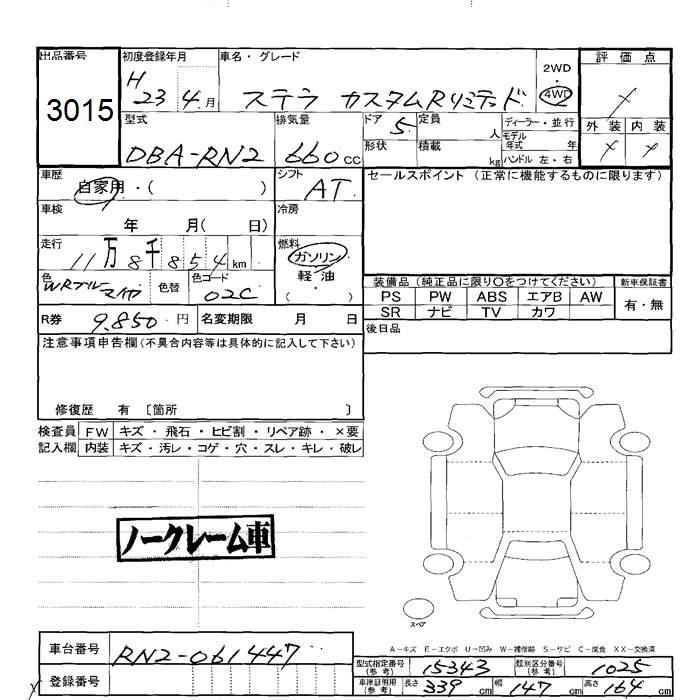 出品番号 初度登録年月 車名・グレード 評価点
3015 H 23 4月 ステラ カスタムRリミテッド 2WD・4WD
型式 排気量 ドア 定員 ディーラー・並行 外装 内装
DBA-RN2 660cc 5 人 モデル年式 年
形状 積載 kg ハンドル 左・右
車歴 シフト セールスポイント (正常に機能するものに限ります)
自家用・( ) AT
車検 冷房
年 月( 日)
走行 燃料
11万8千854km ガソリン
軽油
色 色替 色コード ( )
WRブルーマイカ 02C
装備品 (純正品に限り○をつけてください) 新車保証書
PS PW ABS エアB AW 有・無
SR ナビ TV カワ
R券 9.850円 名変期限 月 日 後日品
注意事項申告欄(不具合内容等は具体的に記入して下さい)
修復歴 有 〔箇所 〕
検査員 FW キズ・飛石・ヒビ割・リペア跡・×要
記入欄 内装 キズ・汚レ・コゲ・穴・スレ・キレ・破レ
ノークレーム車
スペア
A-キズ E-エクボ U-凹み W-補修跡 S-サビ C-腐食 XX-交換済
車台番号 RN2-061447
登録番号
型式指定番号(参考) 15343 類別区分番号(参考) 1025
車庫証明用(参考) 長さ 339cm 幅 147cm 高さ 164cm